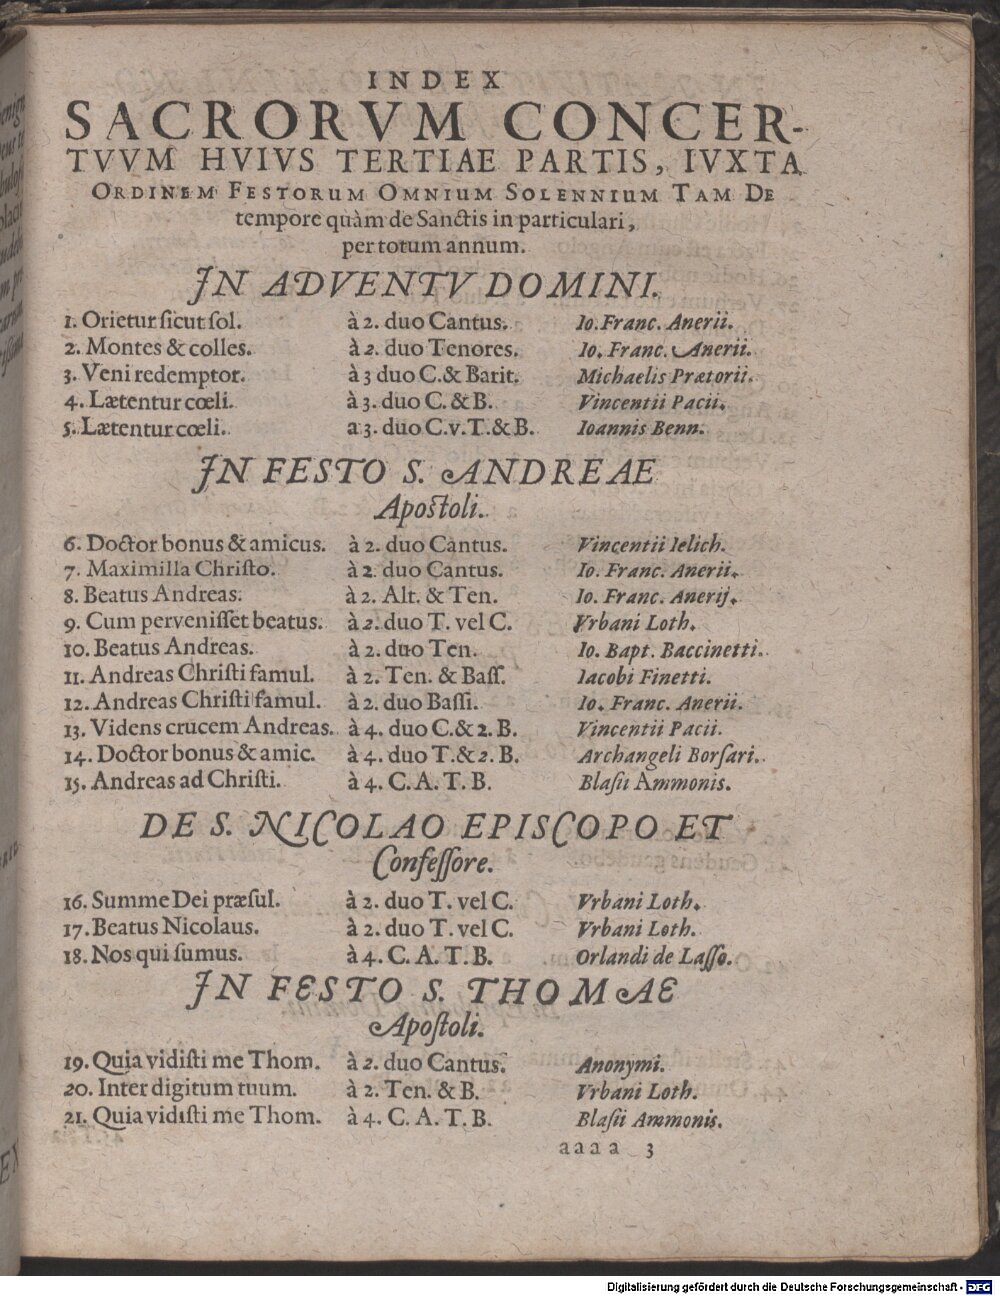 INDEX
SACRORVM CONCER-
TVVM HVIVS TERTIAE PARTIS, IVXTA
ORDINEM FESTORUM OMNIUM SOLENNIUM TAM DE
tempore quàm de Sanctis in particulari,
per totum annum.
IN ADVENTV DOMINI.
1. Orietur ſicut ſol. à 2. duo Cantus. Io. Franc. Anerii.
2. Montes & colles. à 2. duo Tenores. Io. Franc. Anerii.
3. Veni redemptor. à 3 duo C. & Barit. Michaelis Prætorii.
4. Lætentur cœli. à 3. duo C. & B. Vincentii Pacii.
5. Lætentur cœli. a 3. duo C. v. T. & B. Ioannis Benn.
IN FESTO S. ANDREAE
Apoſtoli.
6. Doctor bonus & amicus. à 2. duo Cantus. Vincentii Ielich.
7. Maximilla Chriſto. à 2. duo Cantus. Io. Franc. Anerii.
8. Beatus Andreas. à 2. Alt. & Ten. Io. Franc. Anerij.
9. Cum perveniſſet beatus. à 2. duo T. vel C. Vrbani Loth.
10. Beatus Andreas. à 2. duo Ten. Io. Bapt. Baccinetti.
11. Andreas Chriſti famul. à 2. Ten. & Baſſ. Iacobi Finetti.
12. Andreas Chriſti famul. à 2. duo Baſſi. Io. Franc. Anerii.
13. Videns crucem Andreas. à 4. duo C. & 2. B. Vincentii Pacii.
14. Doctor bonus & amic. à 4. duo T. & 2. B. Archangeli Borſari.
15. Andreas ad Chriſti. à 4. C. A. T. B. Blaſii Ammonis.
DE S. NICOLAO EPISCOPO ET
Confeſſore.
16. Summe Dei præſul. à 2. duo T. vel C. Vrbani Loth.
17. Beatus Nicolaus. à 2. duo T. vel C. Vrbani Loth.
18. Nos qui ſumus. à 4. C. A. T. B. Orlandi de Laſſo.
IN FESTO S. THOMAE
Apoſtoli.
19. Quia vidiſti me Thom. à 2. duo Cantus. Anonymi.
20. Inter digitum tuum. à 2. Ten. & B. Vrbani Loth.
21. Quia vidiſti me Thom. à 4. C. A. T. B. Blaſii Ammonis.
aaaa 3
Digitalisierung gefördert durch die Deutsche Forschungsgemeinschaft - DFG